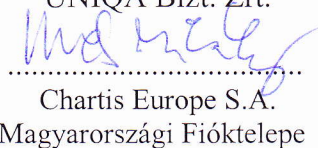 UNIQA Bizt. Zrt.
................................................
Chartis Europe S.A.
Magyarországi Fióktelepe